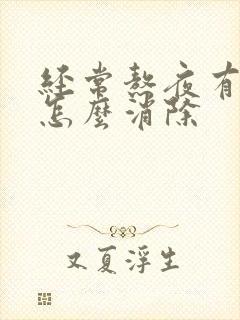 經常熬夜有
怎麼消除
又夏浮生